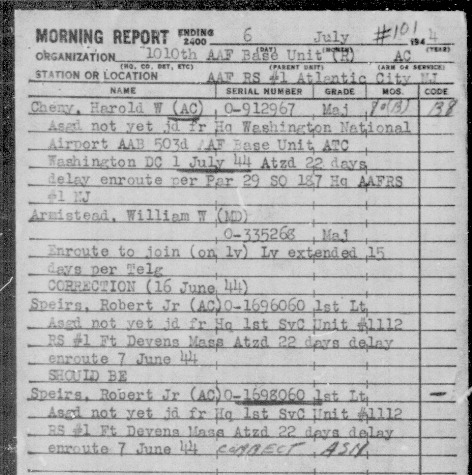 MORNING REPORT ENDING 2400 6 July #101 1944
(DAY) (MONTH) (YEAR)
ORGANIZATION 1010th AAF Base Unit (R) AC
(HQ, CO, DET, ETC) (PARENT UNIT) (ARM OR SERVICE)
STATION OR LOCATION AAF RS #1 Atlantic City NJ
NAME SERIAL NUMBER GRADE MOS. CODE
Cheny, Harold W (AC) 0-912967 Maj
Asgd not yet jd fr Hq Washington National
Airport AAB 503d AAF Base Unit ATC
Washington DC 1 July 44 Atzd 22 days
delay enroute per Par 29 SO 187 Hq AAFRS
#1 NJ
Armistead, William W (MD)
0-335268 Maj
Enroute to join (on lv) Lv extended 15
days per Telg
CORRECTION (16 June 44)
Speirs, Robert Jr (AC) 0-1696060 1st Lt
Asgd not yet jd fr Hq 1st SvC Unit #1112
RS #1 Ft Devens Mass Atzd 22 days delay
enroute 7 June 44
SHOULD BE
Speirs, Robert Jr (AC) 0-1698060 1st Lt —
Asgd not yet jd fr Hq 1st SvC Unit #1112
RS #1 Ft Devens Mass Atzd 22 days delay
enroute 7 June 44 CORRECT ASN